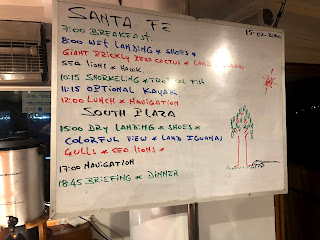 SANTA FE
15-02-20
7:00 BREAKFAST.
8:00 WET LANDING * SHOES *
GIANT PRICKLY PEAR CACTUS * LAND IGUANAS
SEA LIONS * HAWK.
10:15 SNORKELING * TROPICAL FISH
11:15 OPTIONAL KAYAK
12:00 LUNCH * NAVIGATION
SOUTH PLAZA
15:00 DRY LANDING * SHOES *
COLORFUL VIEW * LAND IGUANAS
GULLS * SEA LIONS *
17:00 NAVIGATION
18:45 BRIEFING * DINNER